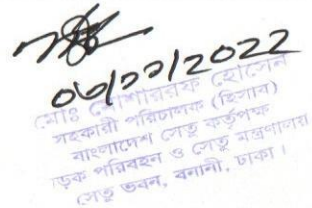 ০৬/১১/২০২২
মোঃ মোশাররফ হোসেন
সহকারী পরিচালক (হিসাব)
বাংলাদেশ সেতু কর্তৃপক্ষ
ড়ক পরিবহন ও সেতু মন্ত্রণালয়
সেতু ভবন, বনানী, ঢাকা।